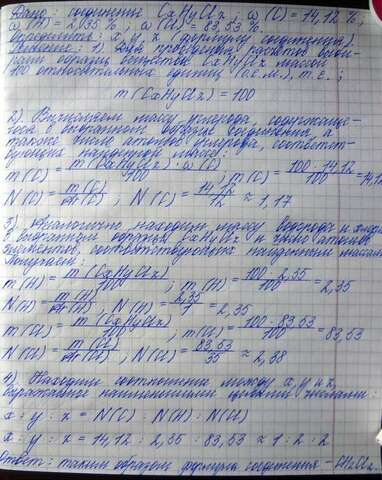 Дано: соединение CxHyClz, ω(C)=14,12%,
ω(H)=2,35%; ω(Cl)=83,53%.
Определить: x, y, z (формулу соединения).
Решение: 1) Для проведения расчетов выби-
раем образец вещества CxHyClz массой
100 относительных единиц (а.е.м.), т.е.:
m(CxHyClz)=100
2) Вычисляем массу углерода, содержаще-
гося в выбранном образце соединения, а
также число атомов углерода, соответст-
вующих найденной массе:
m(C)= m(CxHyClz)·ω(C) / 100 ; m(C)= 100·14,12 / 100 =14,12
N(C)= m(C) / Ar(C) ; N(C)= 14,12 / 12 ≈ 1,17
3) Аналогично находим массу водорода и хлора
в выбранном образце CxHyClz и число атомов
элементов, соответствующих найденным массам.
Получаем:
m(H)= m(CxHyClz) / 100 ; m(H)= 100·2,35 / 100 =2,35
N(H)= m(H) / Ar(H) ; N(H)= 2,35 / 1 = 2,35
m(Cl)= m(CxHyClz) / 100 ; m(Cl)= 100·83,53 / 100 =83,53
N(Cl)= m(Cl) / Ar(Cl) ; N(Cl)= 83,53 / 35 ≈ 2,38
4) Находим соотношение между x, y и z,
выраженное наименьшими целыми числами:
x : y : z = N(C) : N(H) : N(Cl)
x : y : z = 14,12 : 2,35 : 83,53 ≈ 1 : 2 : 2
Ответ: таким образом формула соединения – CH2Cl2.